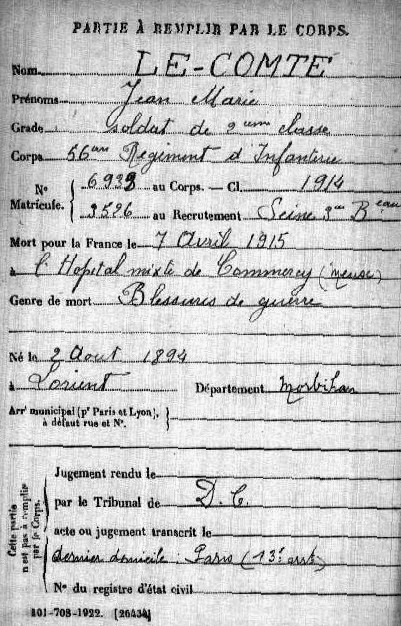 PARTIE À REMPLIR PAR LE CORPS.
Nom LE-COMTE
Prénoms Jean Marie
Grade soldat de 2eme classe
Corps 56eme Régiment d'Infanterie
N° Matricule. { 6933 au Corps. — Cl. 1914
3526 au Recrutement Seine 3eme Beau
Mort pour la France le 7 Avril 1915
à l'Hopital mixte de Commercy (meuse)
Genre de mort Blessures de guerre
Né le 2 Aout 1894
à Lorient Département Morbihan
Arrt municipal (pr Paris et Lyon), à défaut rue et N°. }
Cette partie n'est pas à remplir par le Corps.
Jugement rendu le
par le Tribunal de D.C.
acte ou jugement transcrit le
dernier domicile : Paris (13e arrt)
N° du registre d'état civil
101-708-1922. [26434]